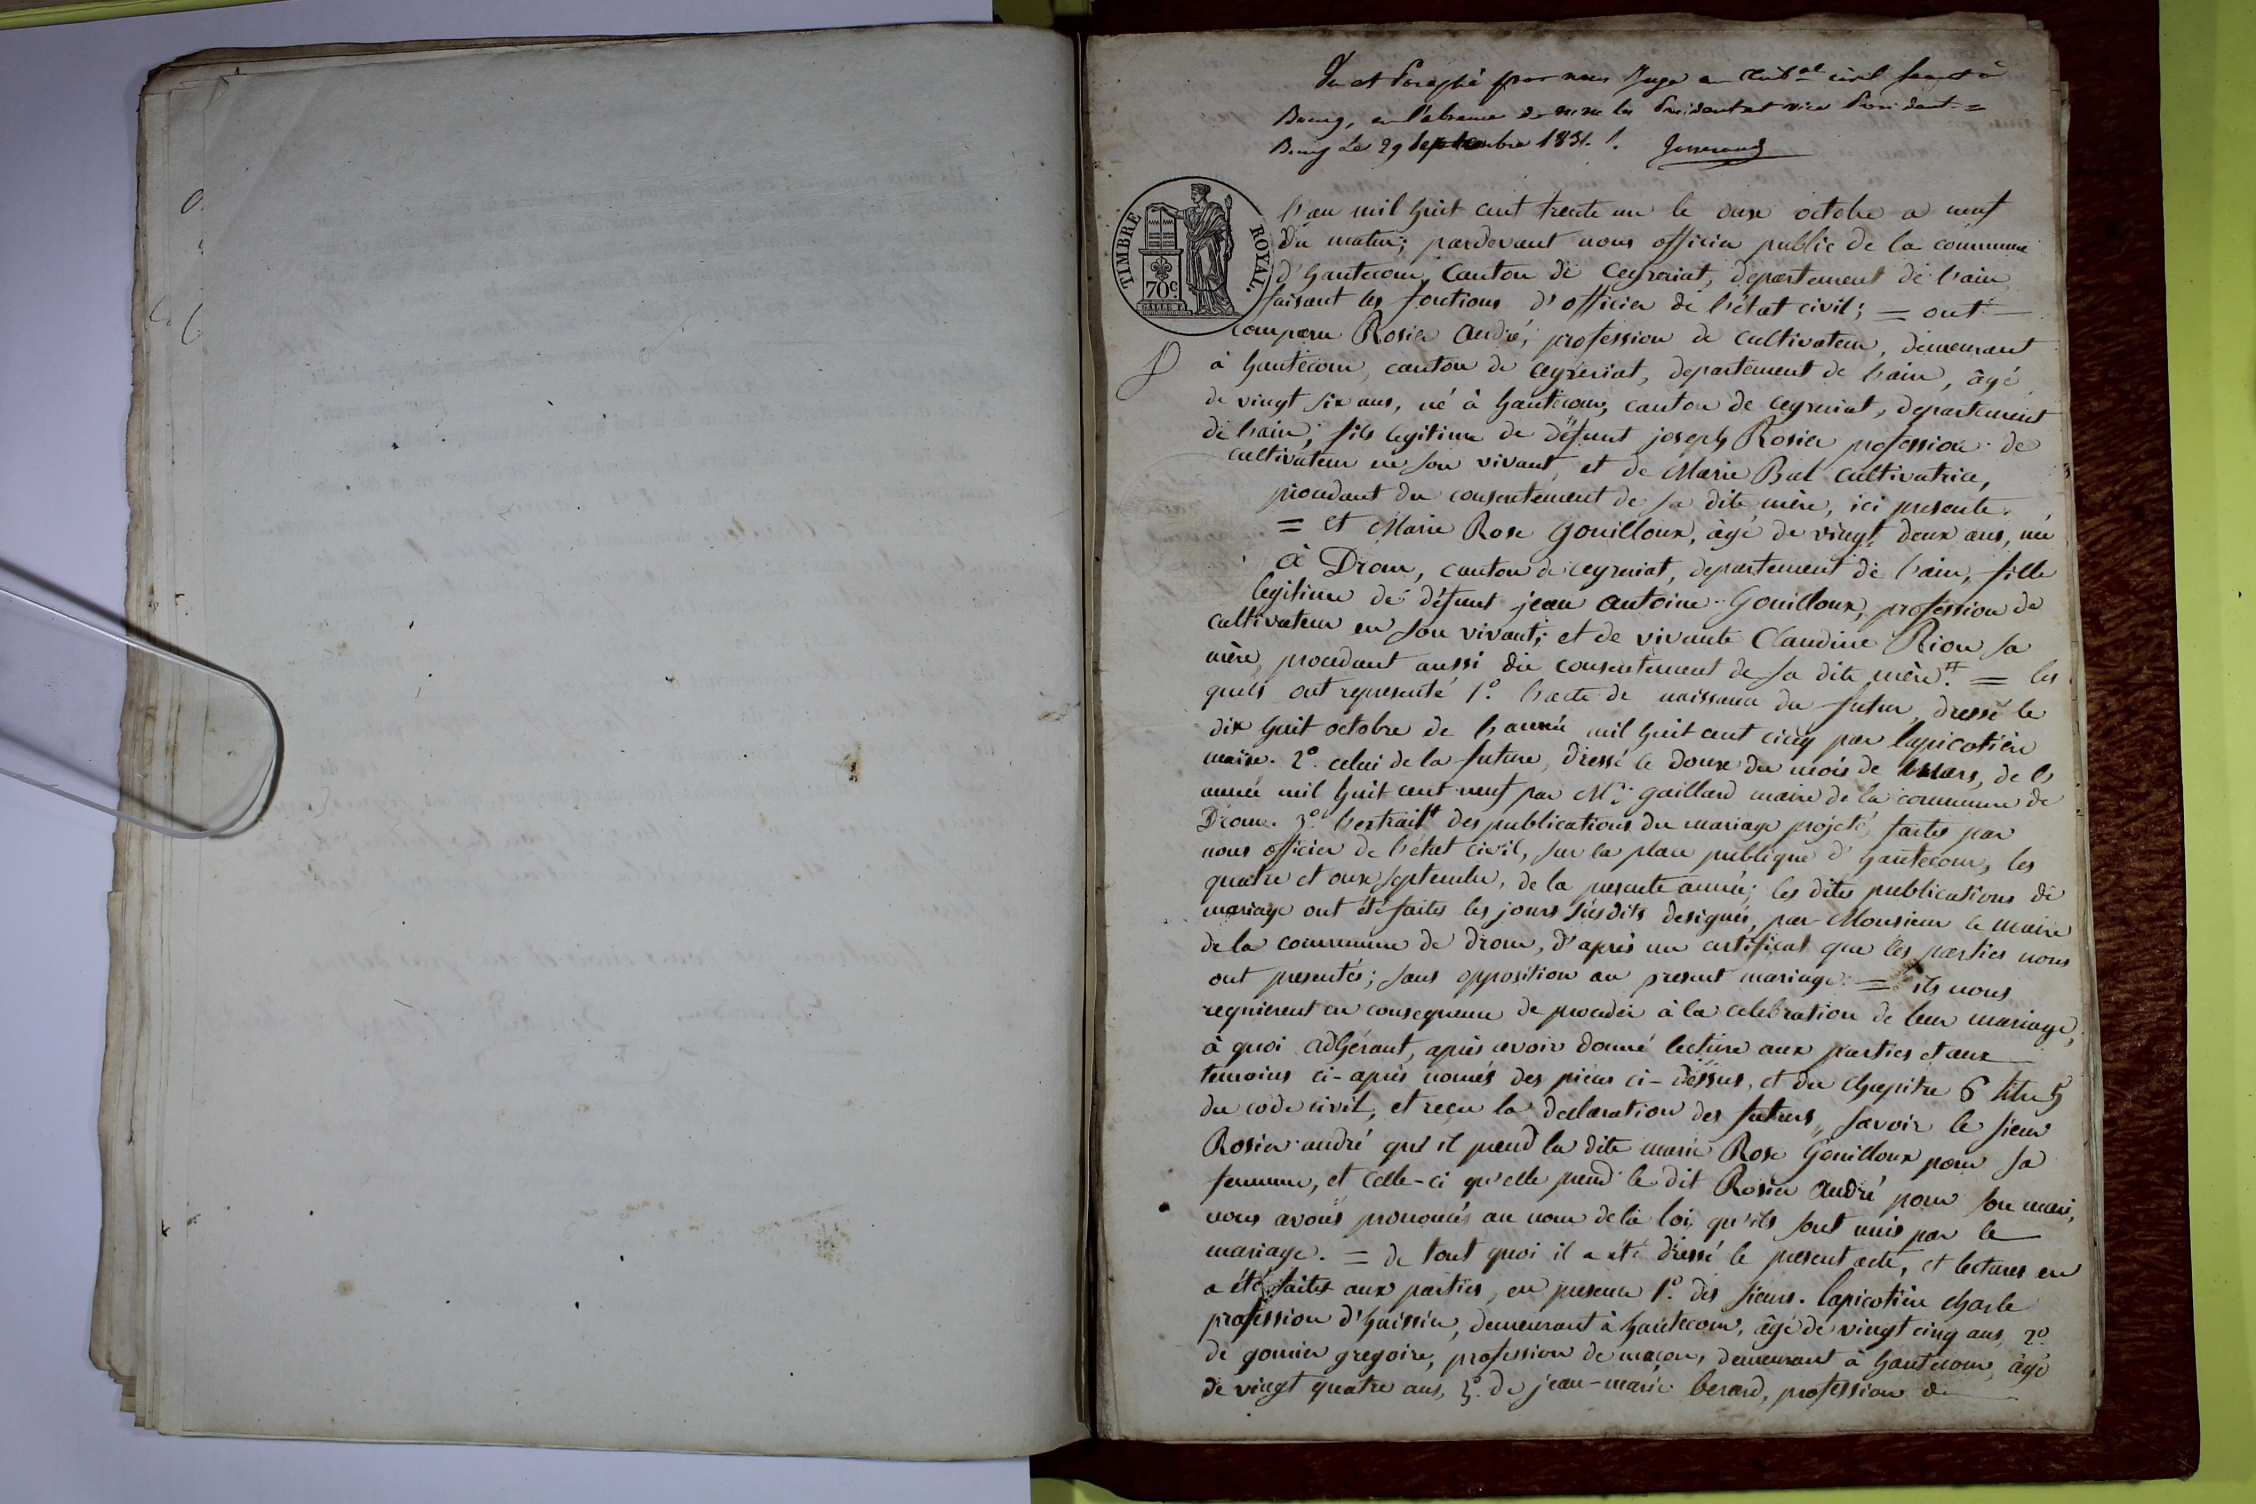 Vu et Paraphé par nous Juge au Trib.al civil seant à
Bourg, en l'absence de mrs les President et vice President =
Bourg Le 29 septembre 1831 /.
TIMBRE ROYAL.
70c.
l'an mil huit cent trente un le onze octobre a neuf
du matin; pardevant nous officier public de la commune
d'hautecour, canton de ceyzeriat, departement de l'ain
faisant les fontions d'officier de l'état civil; = ont
comparu Rosier andré, profession de cultivateur, demeurant
à hautecour, canton de ceyzeriat, departement de l'ain, âgé
de vingt six ans, né à hautecour, canton de ceyzeriat, departement
de l'ain, fils legitime de défunt joseph Rosier profession de
cultivateur en son vivant, et de Marie Bal cultivatrice,
procedant du consentement de sa dite mère, ici presente.
= et Marie Rose Gouilloux, âgé de vingt deux ans, née
à Drom, canton de ceyzeriat, departement de l'ain, fille
legitime de défunt jean antoine Gouilloux, profession de
cultivateur en son vivant; et de vivante Claudine Rion sa
mère, procedant aussi du consentement de sa dite mère. = les
quels ont representé 1º. l'acte de naissance du futur, dressé le
dix huit octobre de l'année mil huit cent cinq par lapicotière
maire. 2º. celui de la future, dressé le douze du mois de Mars, de l'
année mil huit cent neuf par Mr. gaillard maire de la commune de
Drom. 3º. l'extrait des publications du mariage projeté, faites par
nous officier de l'état civil, sur la place publique d'hautecour, les
quatre et onze septembre, de la presente année; les dites publications de
mariage ont été faites les jours susdits designés, par Monsieur le maire
de la commune de drom, d'après un certificat que les parties nous
ont presentés; sans opposition au present mariage: = ils nous
requierent en consequence de proceder à la celebration de leur mariage,
à quoi adhérant, après avoir donné lecture aux parties et aux
temoins ci-après només des pieces ci-dessus, et du chapitre 6 titre 5
du code civil, et reçu la declaration des futurs, savoir le sieur
Rosier andré qu'il prend la dite marie Rose Gouilloux pour sa
femme, et celle-ci qu'elle prend le dit Rosier André pour son mari,
nous avons prononcés au nom de la loi, qu'ils sont unis par le
mariage. = de tout quoi il a été dressé le present acte, et lectures en
a été faites aux parties, en presence 1º. des sieurs. lapicotière charle
profession d'huissier, demeurant à hautecour, âgé de vingt cinq ans, 2º.
de gomier gregoire, profession de maçon, demeurant à hautecour, âgé
de vingt quatre ans, 3º. de jean-marie berard, profession de